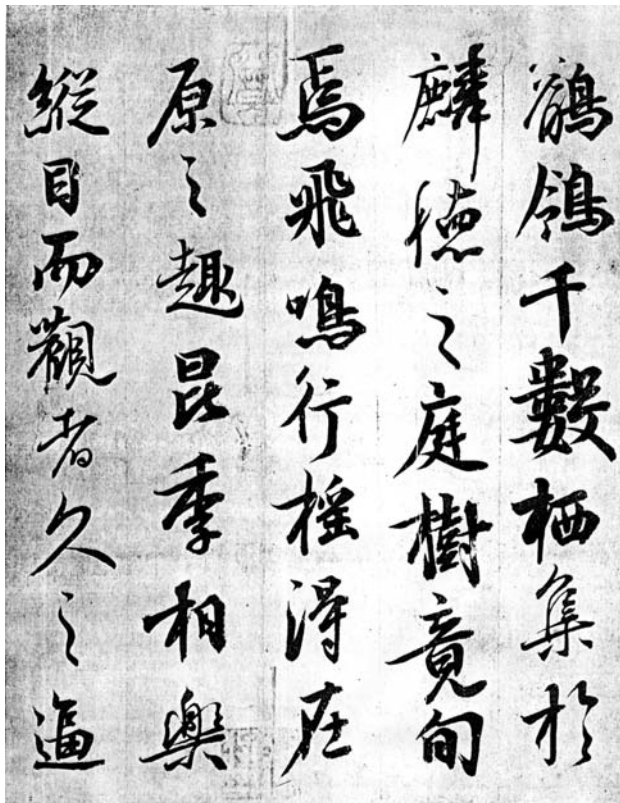 鶺鴒千數栖集於
麟德之庭樹竟旬
焉飛鳴行搖得在
原之趣昆季相樂
縱目而觀者久之逼